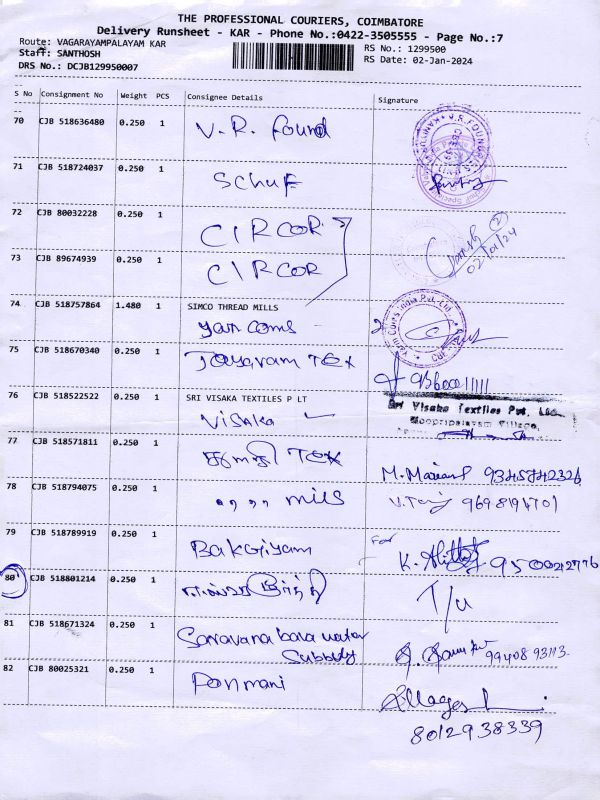 THE PROFESSIONAL COURIERS, COIMBATORE
Delivery Runsheet - KAR - Phone No.:0422-3505555 - Page No.:7
Route: VAGARAYAMPALAYAM KAR
RS No.: 1299500
Staff: SANTHOSH
RS Date: 02-Jan-2024
DRS No.: DCJB129950007
S No Consignment No Weight PCS Consignee Details Signature
70 CJB 518636480 0.250 1
V. R. Found
71 CJB 518724037 0.250 1
Schuf
72 CJB 80032228 0.250 1
CIRCOR
02/01/24
73 CJB 89674939 0.250 1
CIRCOR
74 CJB 518757864 1.480 1 SIMCO THREAD MILLS
yarn coms
75 CJB 518670340 0.250 1
Jayaram Tex
76 CJB 518522522 0.250 1 SRI VISAKA TEXTILES P LT
Visaka
Sri Visaka Textiles Pvt. Ltd.
Mooppripalayam Village,
77 CJB 518571811 0.250 1
Tex
9345742326
78 CJB 518794075 0.250 1
" " mills
79 CJB 518789919 0.250 1
Bakgiyam
For
80 CJB 518801214 0.250 1
T/u
81 CJB 518671324 0.250 1
Saravana bava water
Subbly
99408 93113
82 CJB 80025321 0.250 1
Ponmani
8012938339